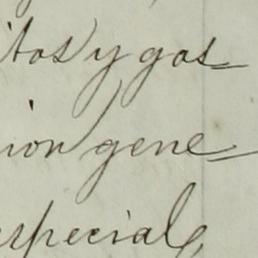 itos y gas=
ion gene=
especiale